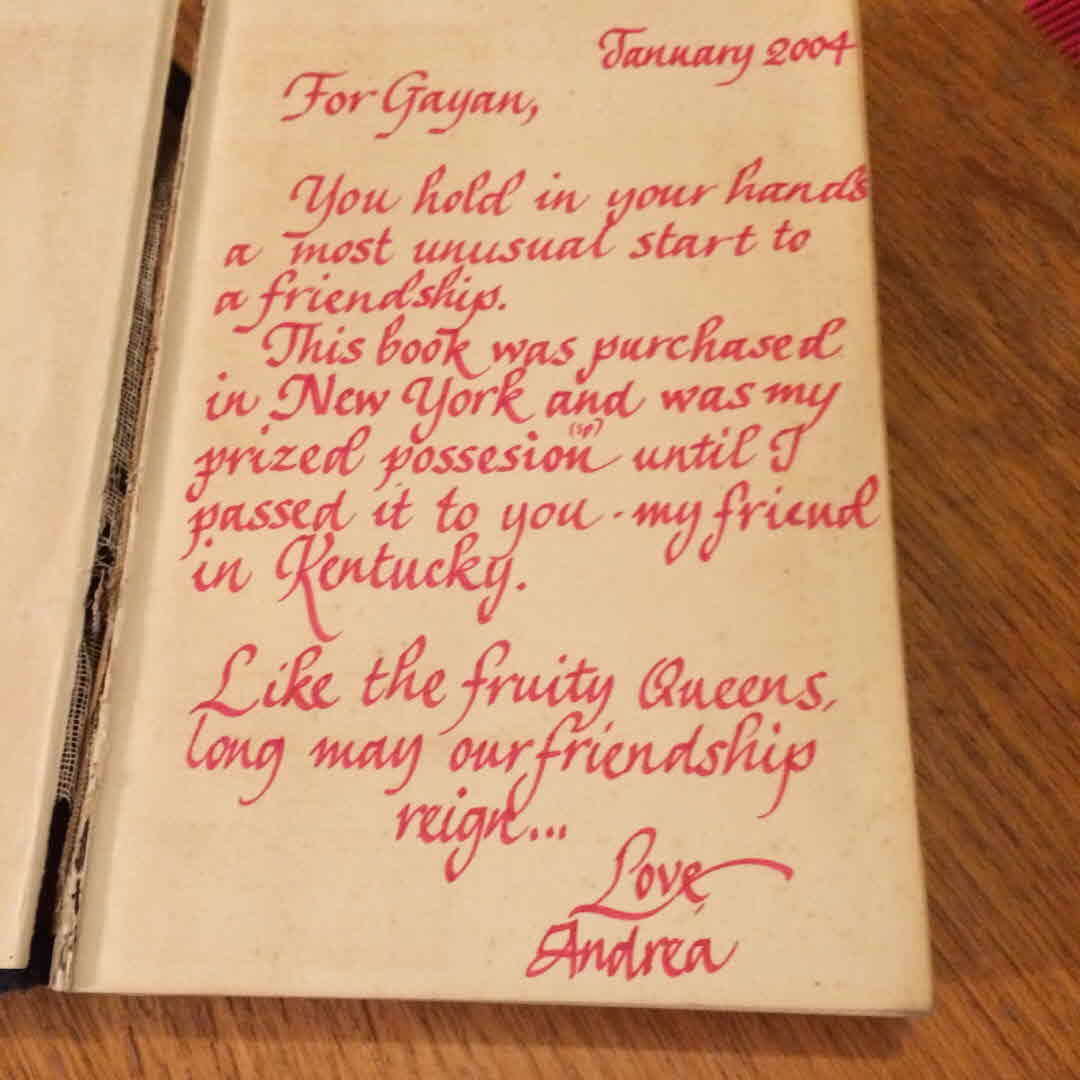 January 2004
For Gayan,
You hold in your hands
a most unusual start to
a friendship.
This book was purchased
in New York and was my
(sp)
prized possesion until I
passed it to you - my friend
in Kentucky.
Like the fruity Queens,
long may our friendship
reign...
Love
Andrea